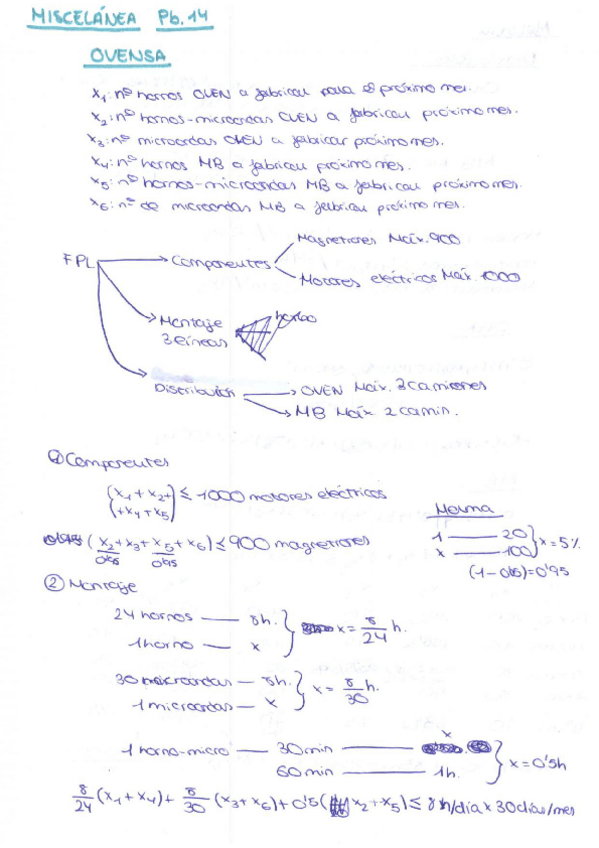 MISCELÁNEA Pb. 14
OVENSA
x₁: nº hornos OVEN a fabricar para el próximo mes.
x₂: nº hornos-microondas OVEN a fabricar próximo mes.
x₃: nº microondas OVEN a fabricar próximo mes.
x₄: nº hornos MB a fabricar próximo mes.
x₅: nº hornos-microondas MB a fabricar próximo mes.
x₆: nº de microondas MB a fabricar próximo mes.
FPL
Componentes
Magnetrones Máx. 900
Motores eléctricos Máx. 1000
Montaje
3 líneas
horno
Distribución
OVEN Máx. 3 camiones
MB Máx. 2 cam.
① Componentes
(x₁ + x₂ + x₄ + x₅) ≤ 1000 motores eléctricos
(x₂/0'95 + x₃ + x₅/0'95 + x₆) ≤ 900 magnetrones
Merma
1 — 20
x — 100 } x = 5%
(1 - 0'05) = 0'95
② Montaje
24 hornos — 8h.
1 horno — x } x = 8/24 h.
30 microondas — 8h.
1 microondas — x } x = 8/30 h.
1 horno-micro — 30 min — x
60 min — 1h. } x = 0'5h
8/24 (x₁ + x₄) + 8/30 (x₃ + x₆) + 0'5 (x₂ + x₅) ≤ 8 h/día x 30 días/mes